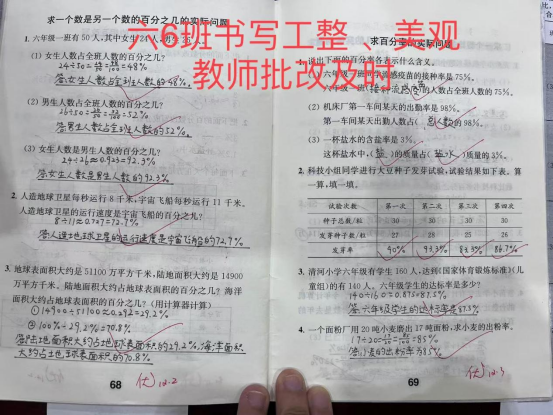 六6班书写工整、美观
教师批改及时
求一个数是另一个数的百分之几的实际问题
1. 六年级一班有50人,其中女生24人,男生
(1) 女生人数占全班人数的百分之几?
24÷50=48/100=48%
答:女生人数占全班人数的48%。
(2) 男生人数占全班人数的百分之几?
26÷50=52/100=52%
答:男生人数占全班人数的52%。
(3) 女生人数是男生人数的百分之几?
24÷26≈0.923=92.3%
答:女生人数是男生人数的92.3%
2. 人造地球卫星每秒运行8千米,宇宙飞船每秒运行11千米。
人造地球卫星的运行速度是宇宙飞船的百分之几?
8÷11≈0.727=72.7%
答:人造地球卫星的运行速度是宇宙飞船的72.7%。
3. 地球表面积大约是51100万平方千米,陆地面积大约是14900
万平方千米。陆地面积大约占地球表面积的百分之几?海洋
面积大约占地球表面积的百分之几?(用计算器计算)
①14900÷51100≈0.292=29.2%
②100%-29.2%=70.8%
答:陆地面积大约占地球表面积的29.2%,海洋面积
大约占地球表面积的70.8%
68
优 12.2
求百分率的实际问题
1. 说出下面的百分率各表示什么含义。
六年级一班同学流感疫苗的接种率是75%。
六年级一班(接种流感)的人数占全班人数的75%。
(2) 机床厂第一车间某天的出勤率是98%。
第一车间某天出勤人数占(总人数)的98%。
(3) 一杯盐水的含盐率是3%。
这杯盐水中,(盐)的质量占(盐水)质量的3%。
2. 科技小组同学进行大豆种子发芽试验,试验结果如下表。算
一算,填一填。
试验次数 第一次 第二次 第三次 第四次
种子总数/粒 30 30 30 30
发芽种子数/粒 27 28 25 26
发芽率 90% 93.3% 83.3% 86.7%
3. 清河小学六年级有学生160人,达到《国家体育锻炼标准》(儿
童组)的有140人。六年级学生的达标率是多少?
140÷160=0.875=87.5%
答:六年级学生的达标率是87.5%
4. 一个面粉厂用20吨小麦磨出17吨面粉,求小麦的出粉率。
17÷20=85/100=85%
答:小麦的出粉率为85%
69
优 12.3